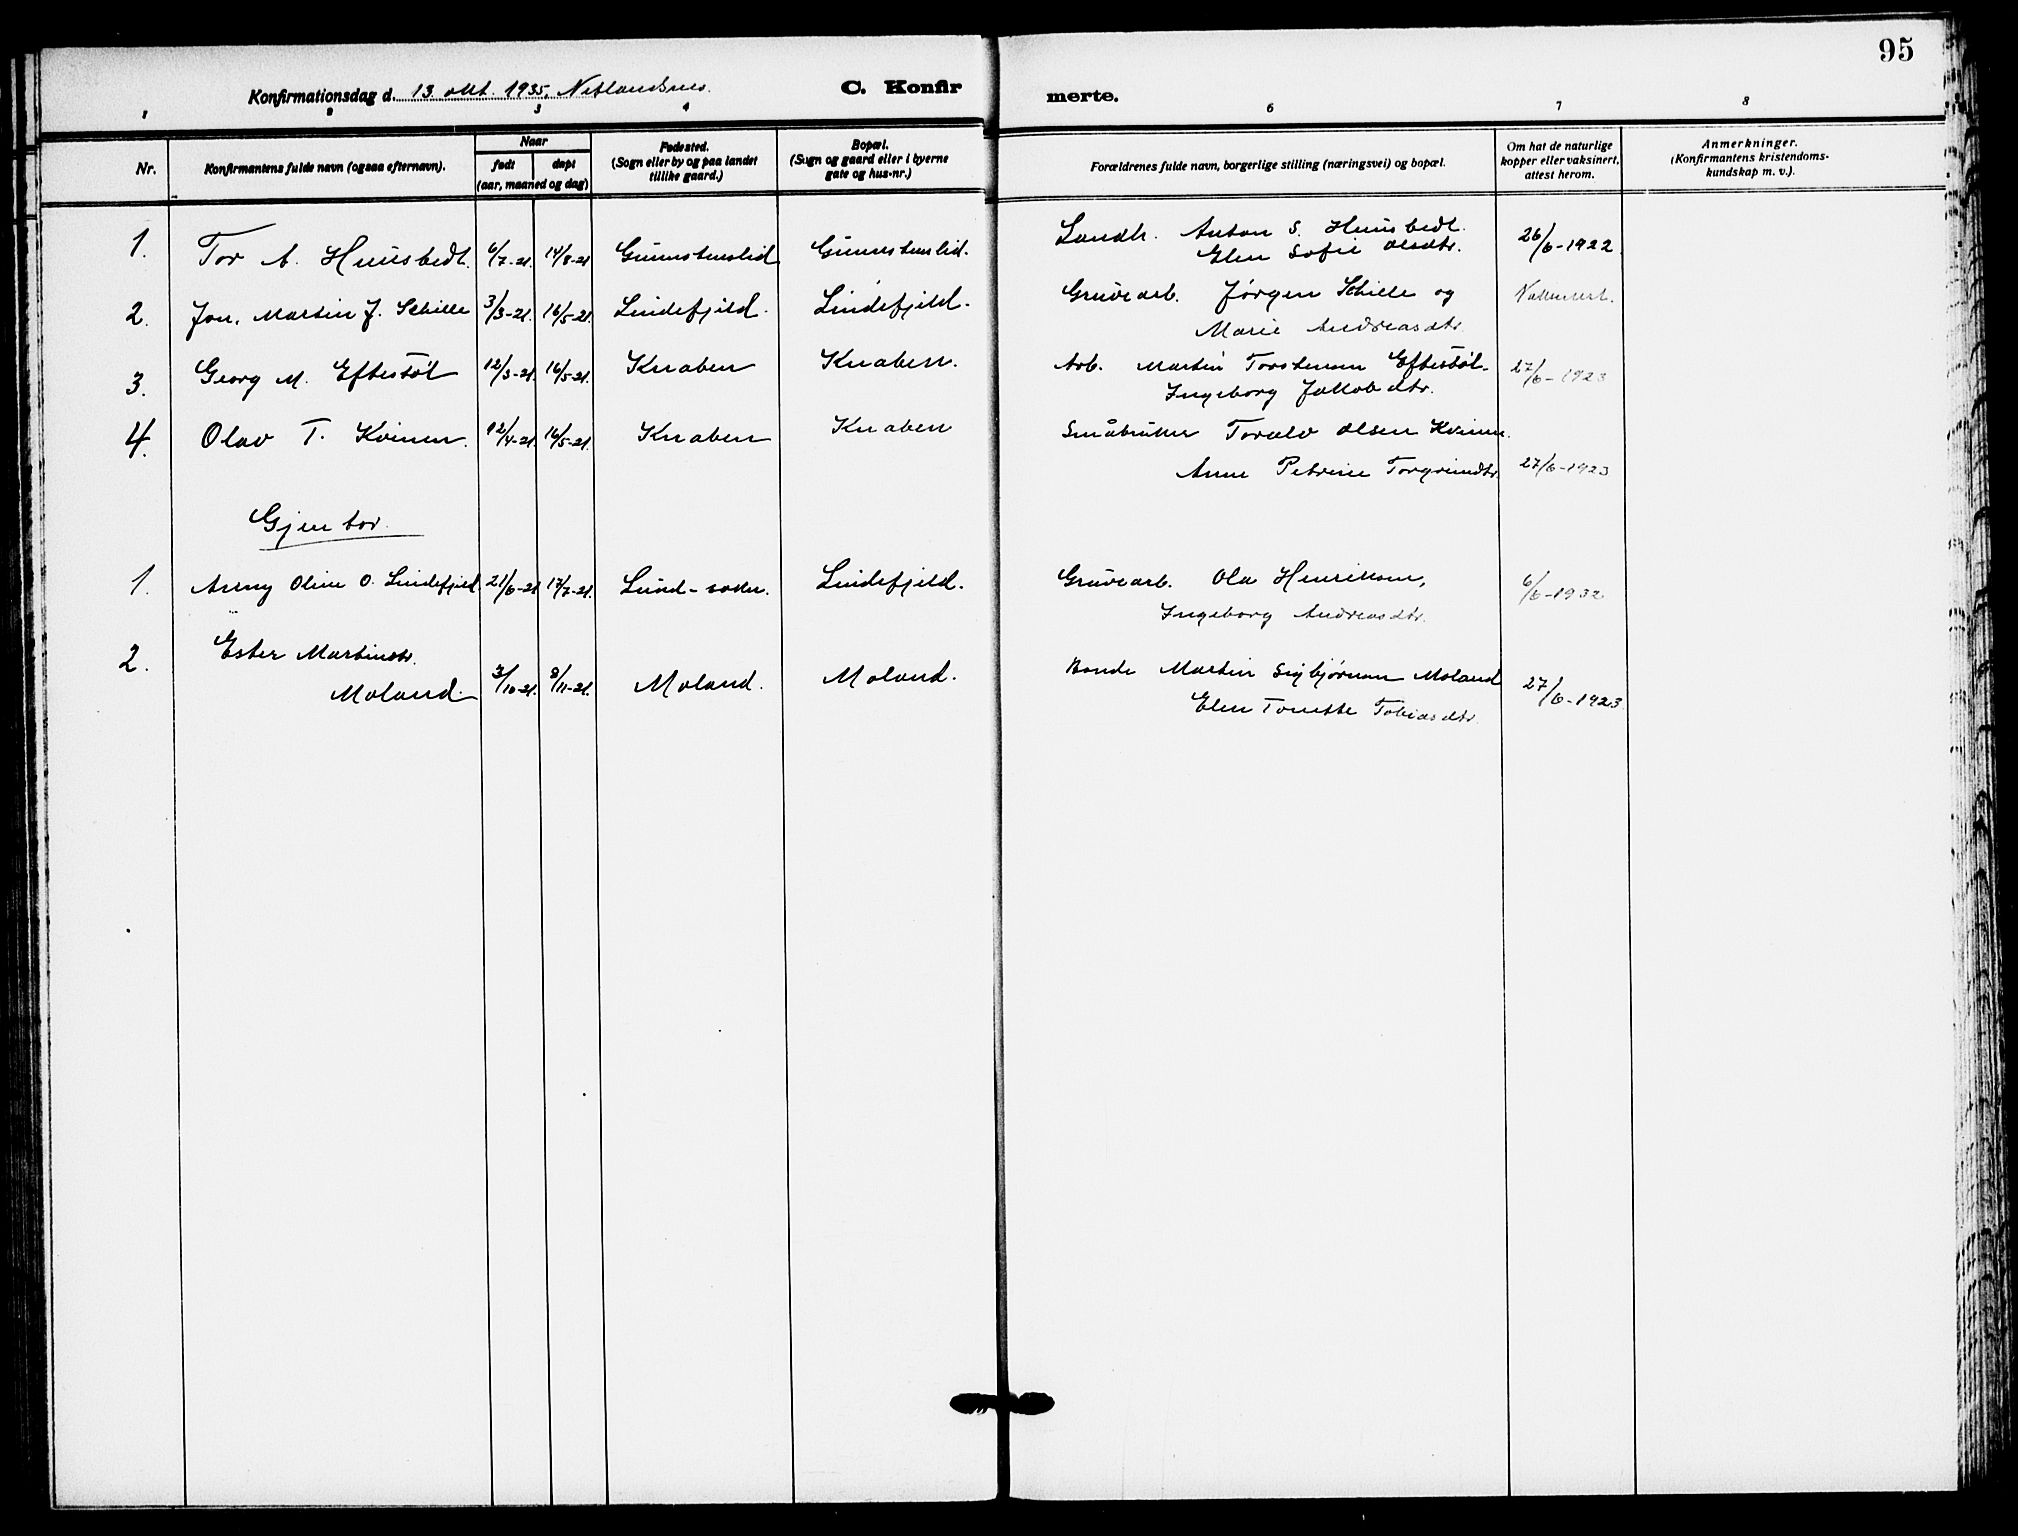 95
Konfirmationsdag d. 13. okt. 1935, Netlandsnes.
C. Konfirmerte.
1 2 3 4 6 7 8
Nr.
Konfirmantens fulde navn (ogsaa efternavn).
Naar
født
døpt
(aar, maaned og dag)
Fødested.
(Sogn eller by og paa landet
tillike gaard.)
Bopæl.
(Sogn og gaard eller i byerne
gate og hus-nr.)
Forældrenes fulde navn, borgerlige stilling (næringsvei) og bopæl.
Om hat de naturlige
kopper eller vaksinert,
attest herom.
Anmerkninger.
(Konfirmantens kristendoms-
kundskap m. v.).
1. Tor A. Hunsbedt. 6/7-21. 14/8-21 Gunnstenslid Gunnstenslid. Landh. Anton S. Hunsbedt. 26/6-1922
Elen Sofie Olsdtr.
2. Jon. Martin J. Schille 3/3-21. 16/5-21. Lindefjeld. Lindefjeld. Gruvearb. Jørgen Schille og
Marie Andreasdtr.
3. Georg M. Eftestøl 12/3-21. 16/5-21. Knaben Knaben. Arb. Martin Torstensen Eftestøl. 27/6-1923
Ingeborg Jakobdtr.
4. Olav T. Kvinen. 12/4-21. 16/5-21. Knaben Knaben Småbruker Toralv Olsen Kvinen.
Anne Petrine Torgrimdtr. 27/6-1923
Gjentor.
1. Asny Oline O. Lindefjeld. 21/6-21 17/7-21. Lund-sokn. Lindefjeld. Gruvearb. Ola Henriksen, 6/6-1932
Ingeborg Andreasdtr.
2. Ester Martinsdtr.
Moland. 3/10-21. 8/11-21. Moland. Moland. Bonde Martin Sigbjørnsen Moland 27/6-1923
Elen Tonette Tobiasdtr.